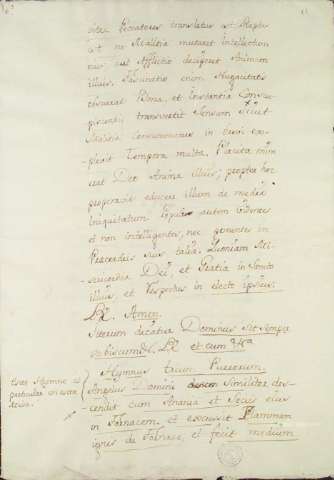 inter peccatores translatus est Raptus
est ne Malitia mutaret intellectum
eius aut Afflictio deciperet Animam
illius. Fascinatio enim Nugacitatis
obscurat Bona, et Inconstantia Concu-
piscentiæ transvertit Sensum sine
Malitia Consummatus in brevi com-
plevit Tempora multa. Placita enim
erat Deo Anima illius; propter hoc
properavit educere illum de medio
Iniquitatum Populi autem videntes
et non intelligentes, nec ponentes in
Præcordiis suis talia. Quoniam Mi-
sericordia Dei, et Gratia in Sanctos
illius, et Respectus in electos ipsius.
R. Amen.
Iterum dicatur Dominus sit semper
vobiscum R. et cum
Hymnus trium Puerorum.
Angelus Domini similiter des-
cendit cum Anania et Sociis eius
in Fornacem, et excussit Flammam
ignis de Fornace, et fecit medium
este Hymno es
particular en esta